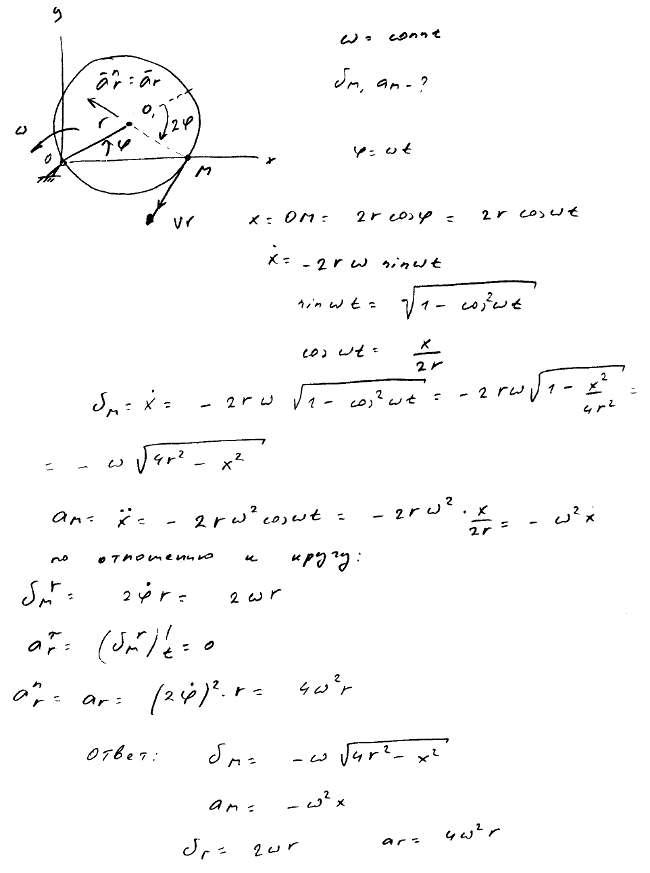 y
ω = const
āⁿr = ār
υм, aм - ?
O₁
r
2φ
ω
φ
φ = ωt
O
M
x
Vr
x = OM = 2r cosφ = 2r cosωt
ẋ = -2rω sinωt
sinωt = √(1 - cos²ωt)
cosωt = x/2r
υм = ẋ = -2rω √(1 - cos²ωt) = -2rω √(1 - x²/4r²) =
= -ω √(4r² - x²)
aм = ẍ = -2rω² cosωt = -2rω² · x/2r = -ω²x
по отношению к кругу:
υмʳ = 2φ̇r = 2ωr
aʳτ = (υмʳ)'t = 0
arⁿ = ar = (2φ̇)² · r = 4ω²r
Ответ: υм = -ω √(4r² - x²)
aм = -ω²x
υr = 2ωr ar = 4ω²r